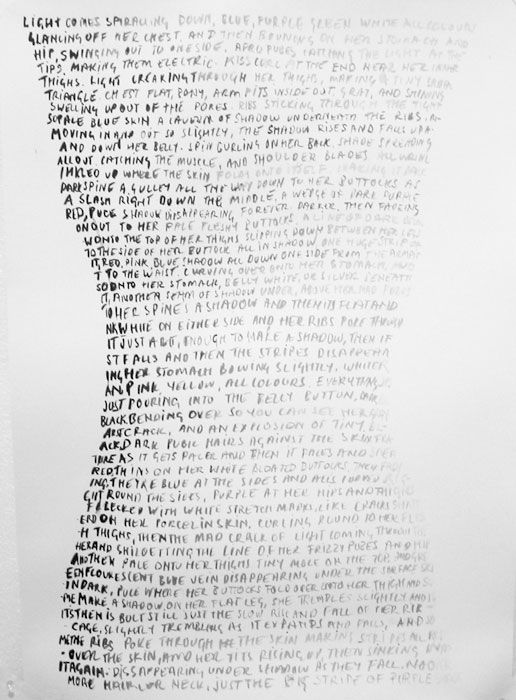 LIGHT COMES SPIRALLING DOWN, BLUE, PURPLE GREEN WHITE ALL COLOURS
GLANCING OFF HER CHEST, AND THEN BOUNCING ON HER STOMACH AND
HIP, SWINGING OUT TO ONE SIDE, AFRO PUBES CATCHING THE LIGHT AT THE
TIPS, MAKING THEM ELECTRIC. KISS CURL AT THE END NEAR HER INNER
THIGHS. LIGHT CREAKING THROUGH HER THIGHS, MAKING A TINY
TRIANGLE CHEST FLAT, BONY, ARM PITS INSIDE OUT GRAY, AND SHINING
SWELLING UP OUT OF THE PORES. RIBS STICKING THROUGH THE TIGHT
SUPALE BLUE SKIN A CAVERN OF SHADOW UNDERNEATH THE RIBS.
MOVING IN AND OUT SO SLIGHTLY, THE SHADOW RISES AND FALLS UP A-
AND DOWN HER BELLY. SPIN CURLING ON HER BACK, SHADE SPREADING
ALL OUT, CATCHING THE MUSCLE, AND SHOULDER BLADES ALL WRINK
INKLED UP WHERE THE SKIN FOLDS ONTO ITSELF, MAKING IT
DARK SPINE A GULLEY ALL THE WAY DOWN TO HER BUTTOCKS AS
A SLASH RIGHT DOWN THE MIDDLE, A WEDGE OF DARK PURPLE
RED, PUCE SHADOW DISAPPEARING FOREVER DARKER, THEN FADING
ON OUT TO HER PALE FLESHY BUTTOCKS A LINE OF DARK RED
WONTO THE TOP OF HER THIGHS SLIPPING DOWN BETWEEN HER LEGS
TO THE SIDE OF HER BUTTOCK ALL IN SHADOW ONE HUGE STRIP OF
IT, RED, PINK, BLUE SHADOW ALL DOWN ONE SIDE FROM THE ARMPIT
T TO THE WAIST. CURVING OVER ONTO HER STOMACH, AND
SO ONTO HER STOMACH, BELLY WHITE, OR SILVER BENEATH
IT, ANOTHER SEAM OF SHADOW UNDER, ABOVE HER
TO HER SPINES A SHADOW AND THEN ITS FLAT AND
NK WHITE ON EITHER SIDE AND HER RIBS POKE THROUGH
IT JUST A BIT, ENOUGH TO MAKE A SHADOW, THEN IF
ST FALLS AND THEN THE STRIPES DISAPPEAR
ING HER STOMACH BOWING SLIGHTLY, WHITER
AND PINK YELLOW, ALL COLOURS, EVERYTHING
JUST POURING INTO THE BELLY BUTTON, DARK
BLACK BENDING OVER SO YOU CAN SEE HER
ARSE CRACK, AND AN EXPLOSION OF TINY BL-
ACK, DARK PUBIC HAIRS AGAINST THE SKIN
AS IT GETS PALER AND THEN IT FALES AND
RED THINS ON HER WHITE BLOATED BUTTOCKS THEN FAD
ING, THEY'RE BLUE AT THE SIDES AND
ROUND THE SIDES, PURPLE AT HER HIPS AND THIGHS
FLECKED WITH WHITE STRETCH MARKS, LIKE CRACKS
END ON HER PORCELIN SKIN, CURLING ROUND TO HER
H THIGHS, THEN THE MAD CRACK OF LIGHT COMING, THROUGH
HER AND SHILOETTING THE LINE OF HER FRIZZY PUBES AND
ANOTHER PALE ONTO HER THIGHS TINY MOLE ON THE TOP, AND
FLOURESCENT BLUE VEIN DISAPPEARING UNDER THE SURFACE
IN DARK, PUCE WHERE HER BUTTOCKS FOLD OVER ONTO HER THIGH AND
ME MAKE A SHADOW, ON HER FLAT LEG, SHE TREMBLES SLIGHTLY AND
ITS THEN IS BUT STILL JUST THE SLOW RISE AND FALL OF HER RIB-
CAGE, SLIGHTLY TREMBLING AS IT EXPANDS AND FALLS, AND SO
ME THE RIBS POKE THROUGH THE SKIN MAKING STRIPES ALL
- OVER THE SKIN, AND HER TITS RISING UP, THEN SINKING DOWN
IT AGAIN. DISSAPPEARING UNDER SHADOW AS THEY FALL. NO
MORE HAIR, OR NECK, JUST THE BIG STRIPE OF PURPLE